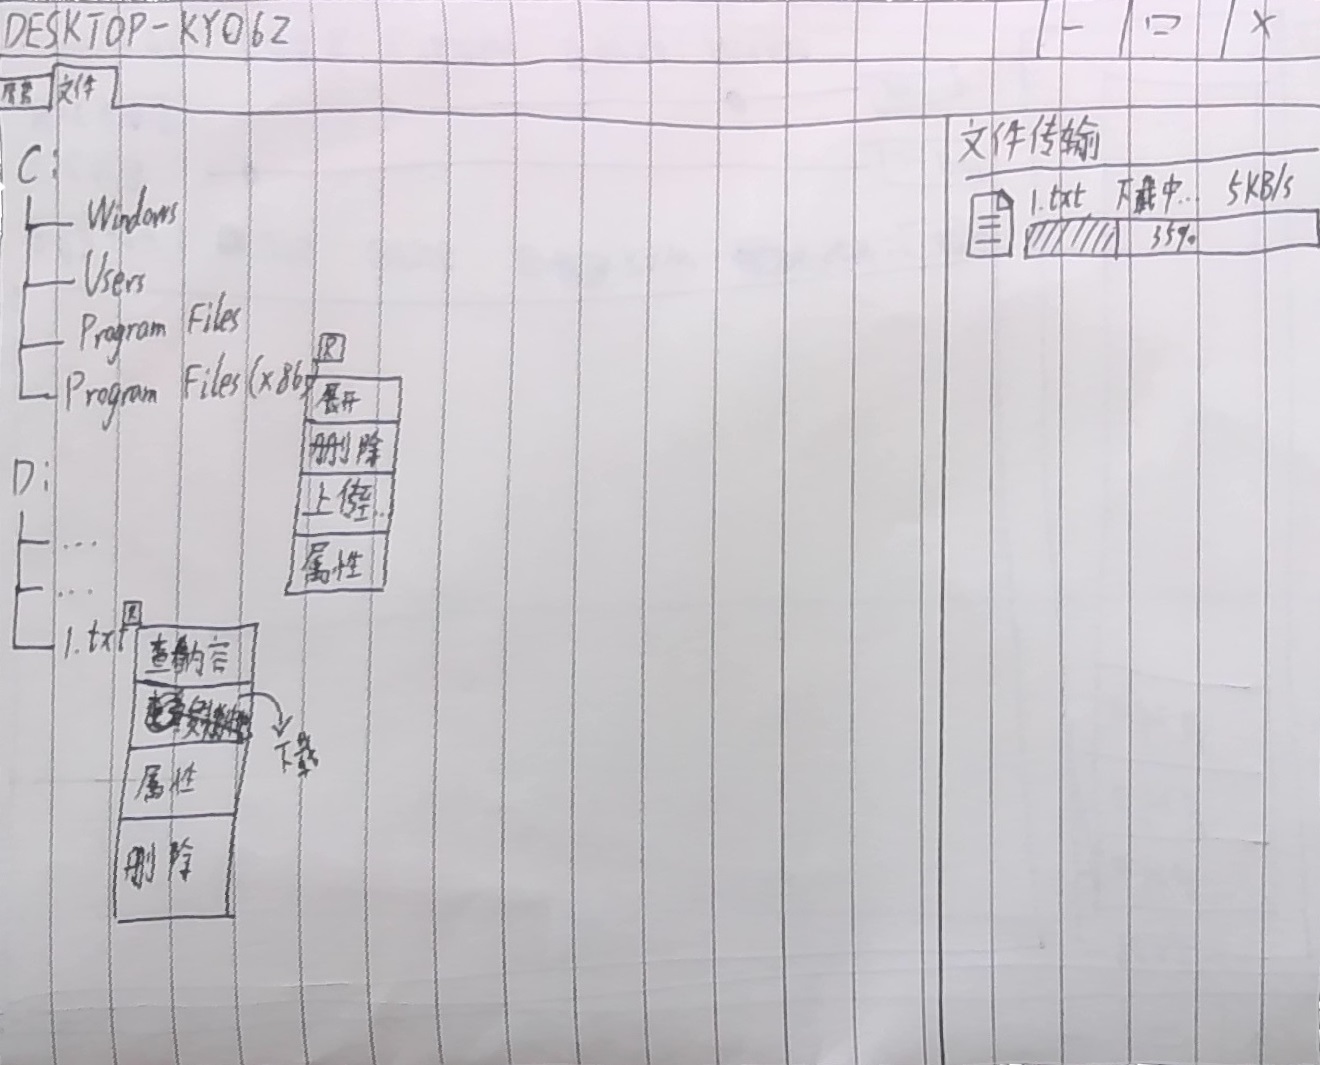 DESKTOP-KY06Z
- □ ×
文件
C:
Windows
Users
Program Files
Program Files(x86)
R
展开
删除
上传至..
属性
D:
...
...
1.txt
R
查看内容
下载
属性
删除
文件传输
1.txt 下载中... 5KB/s
35%